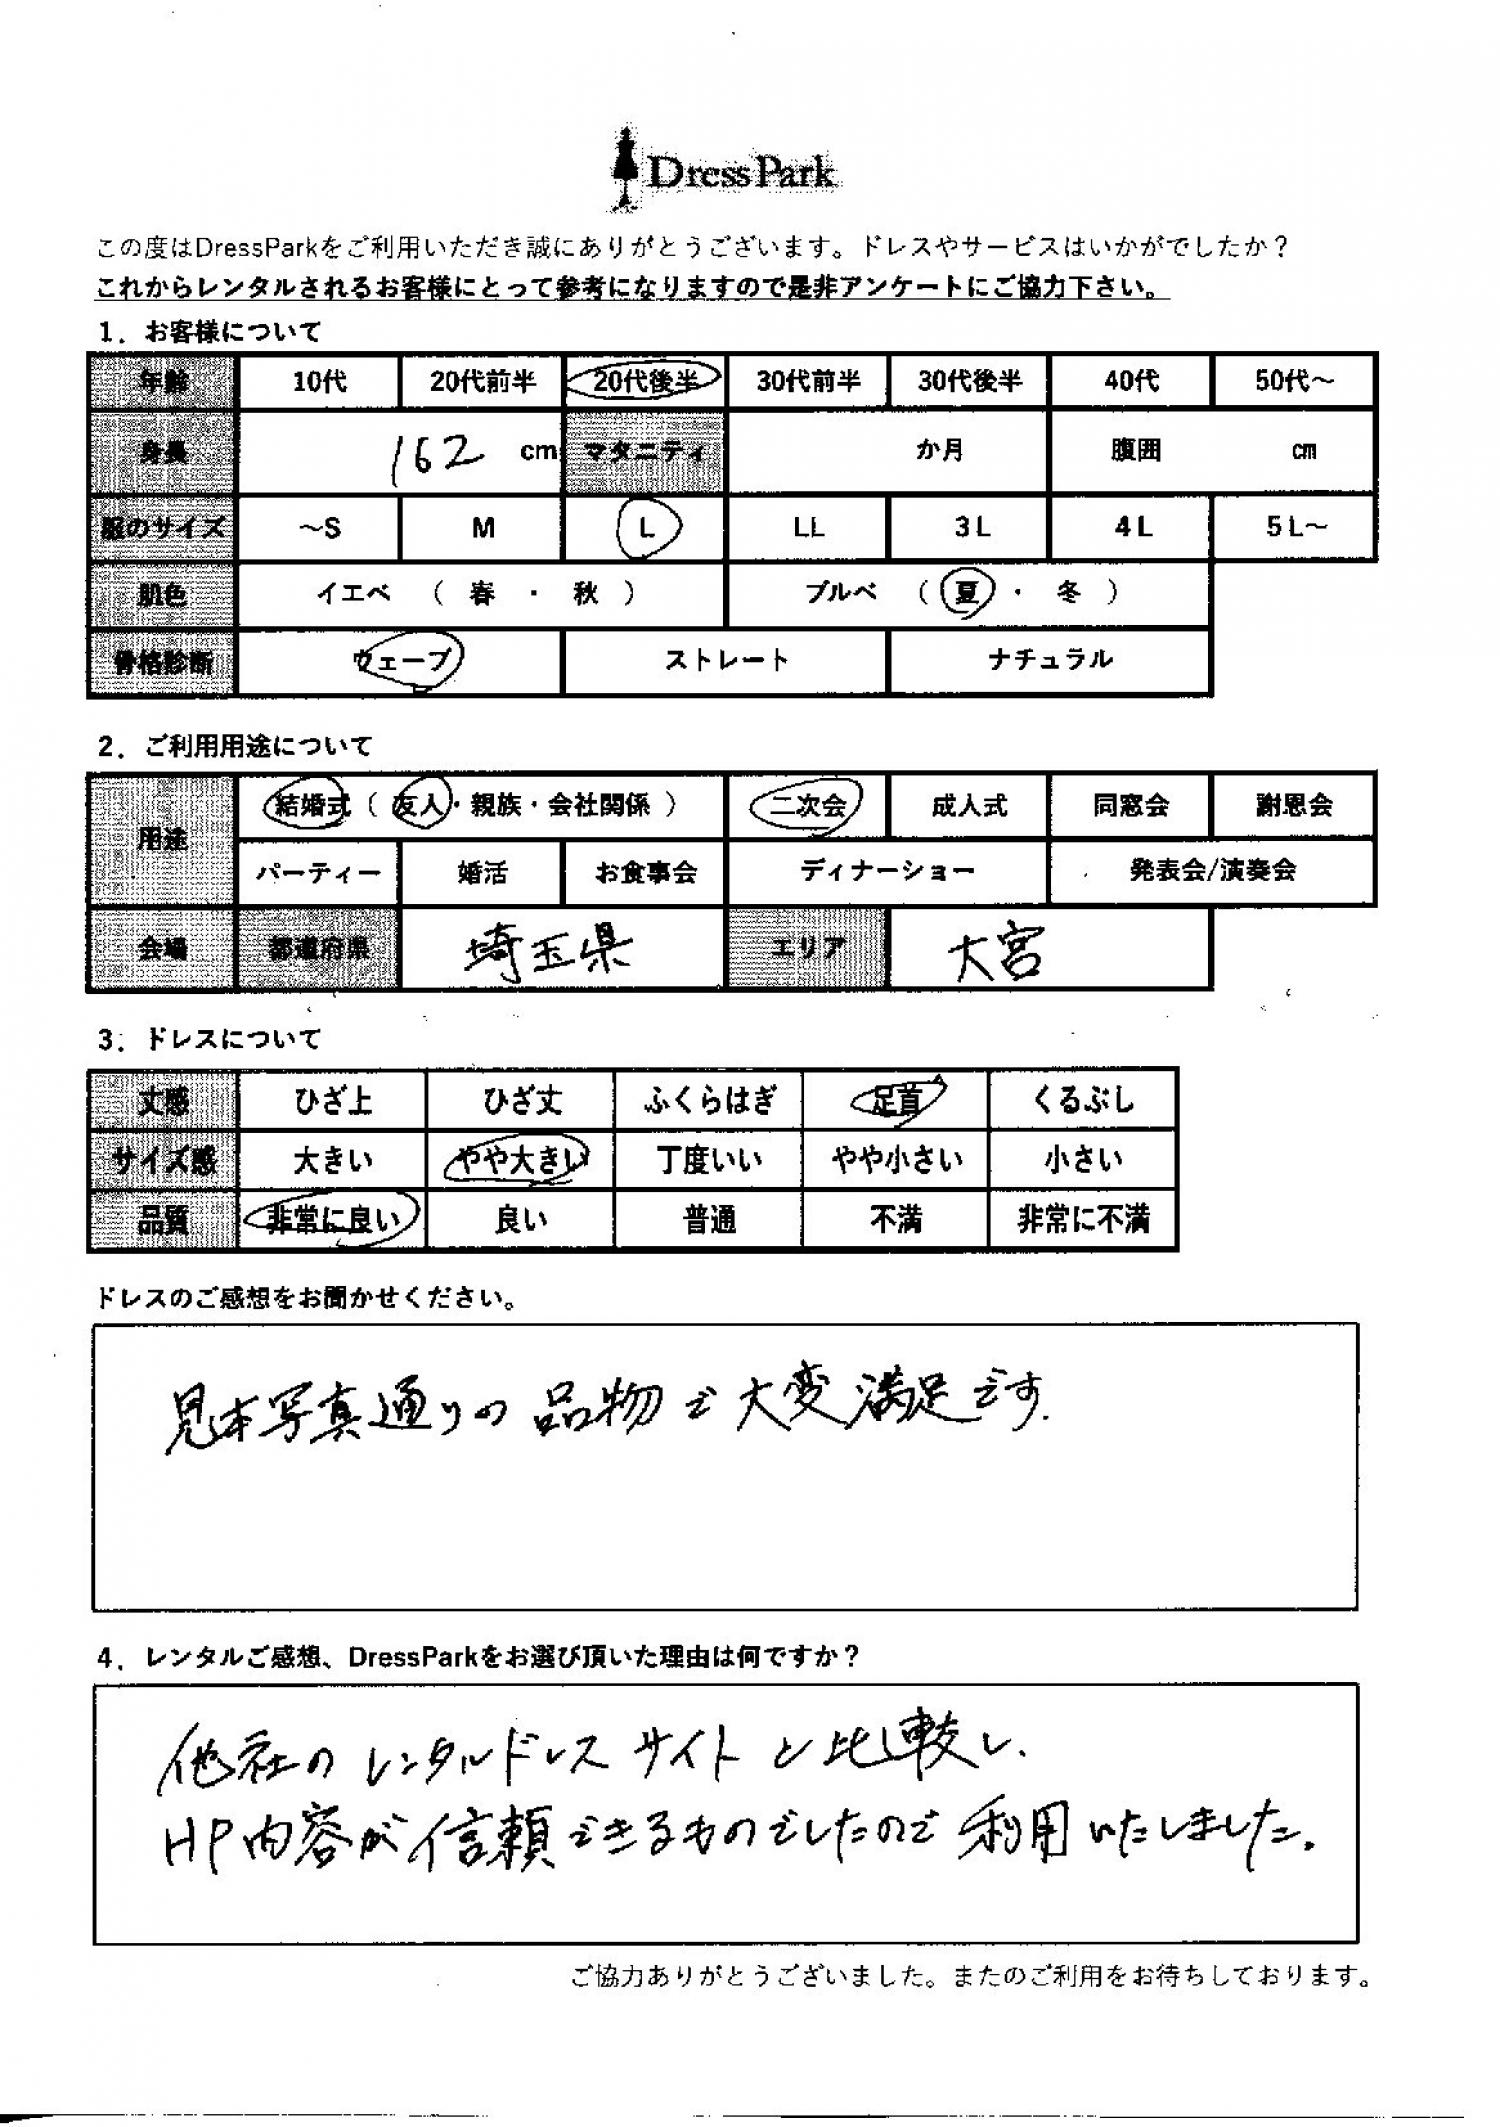 DressPark
この度はDressParkをご利用いただき誠にありがとうございます。ドレスやサービスはいかがでしたか？
これからレンタルされるお客様にとって参考になりますので是非アンケートにご協力下さい。
1．お客様について
年齢 10代 20代前半 20代後半 30代前半 30代後半 40代 50代～
身長 162 cm マタニティ か月 腹囲 ㎝
服のサイズ ～S M L LL 3L 4L 5L～
肌色 イエベ （ 春 ・ 秋 ） ブルベ （ 夏 ・ 冬 ）
骨格診断 ウェーブ ストレート ナチュラル
2．ご利用用途について
用途 結婚式（ 友人・親族・会社関係 ） 二次会 成人式 同窓会 謝恩会
パーティー 婚活 お食事会 ディナーショー 発表会/演奏会
会場 都道府県 埼玉県 エリア 大宮
3．ドレスについて
丈感 ひざ上 ひざ丈 ふくらはぎ 足首 くるぶし
サイズ感 大きい やや大きい 丁度いい やや小さい 小さい
品質 非常に良い 良い 普通 不満 非常に不満
ドレスのご感想をお聞かせください。
見本写真通りの品物で大変満足です.
4．レンタルご感想、DressParkをお選び頂いた理由は何ですか？
他社のレンタルドレスサイトと比較し、
HP内容が信頼できるものでしたので利用いたしました。
ご協力ありがとうございました。またのご利用をお待ちしております。